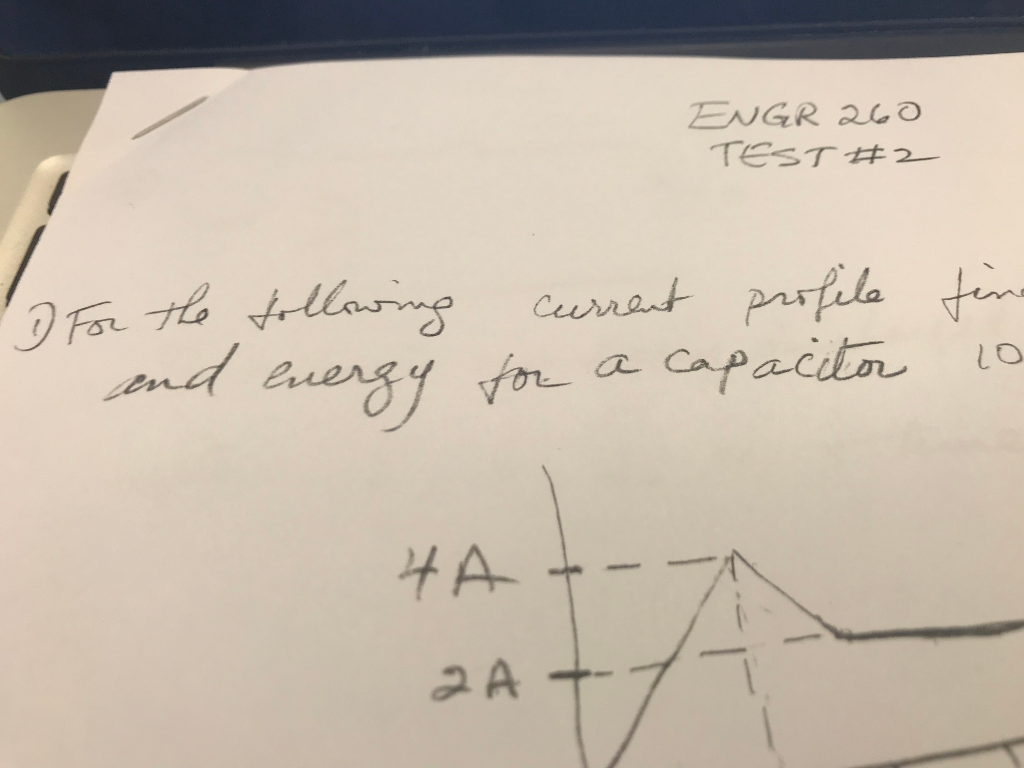 ENGR 260
TEST #2
1) For the following current profile
and energy for a capacitor 10
4A
2A